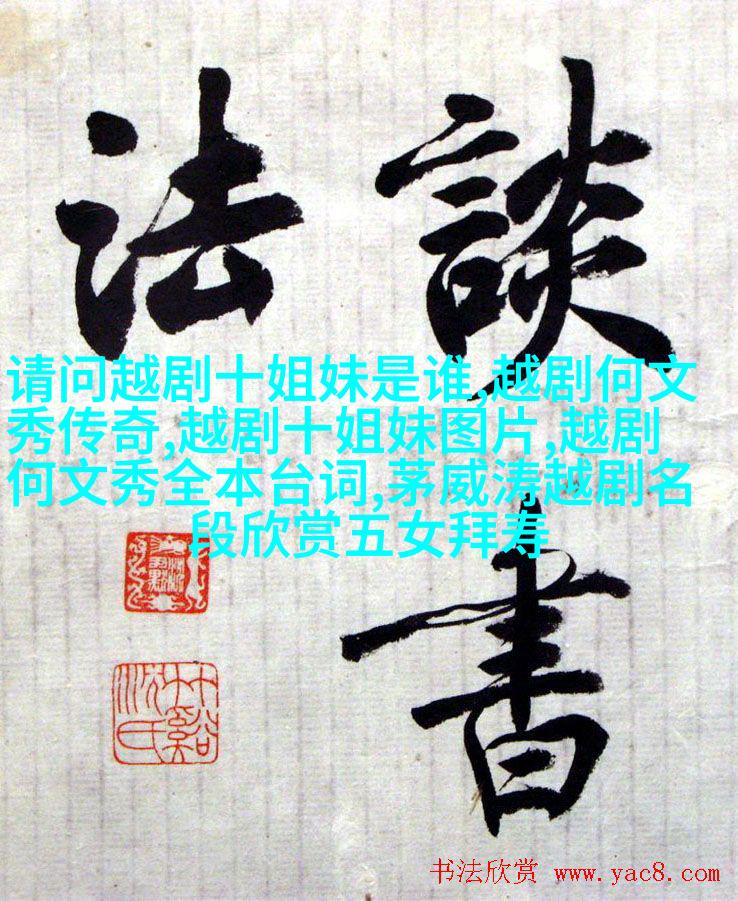 談書
法
请问越剧十姐妹是谁,越剧何文
秀传奇,越剧十姐妹图片,越剧
何文秀全本台词,茅威涛越剧名
段欣赏五女拜寿
书法欣赏 www.yac8.com